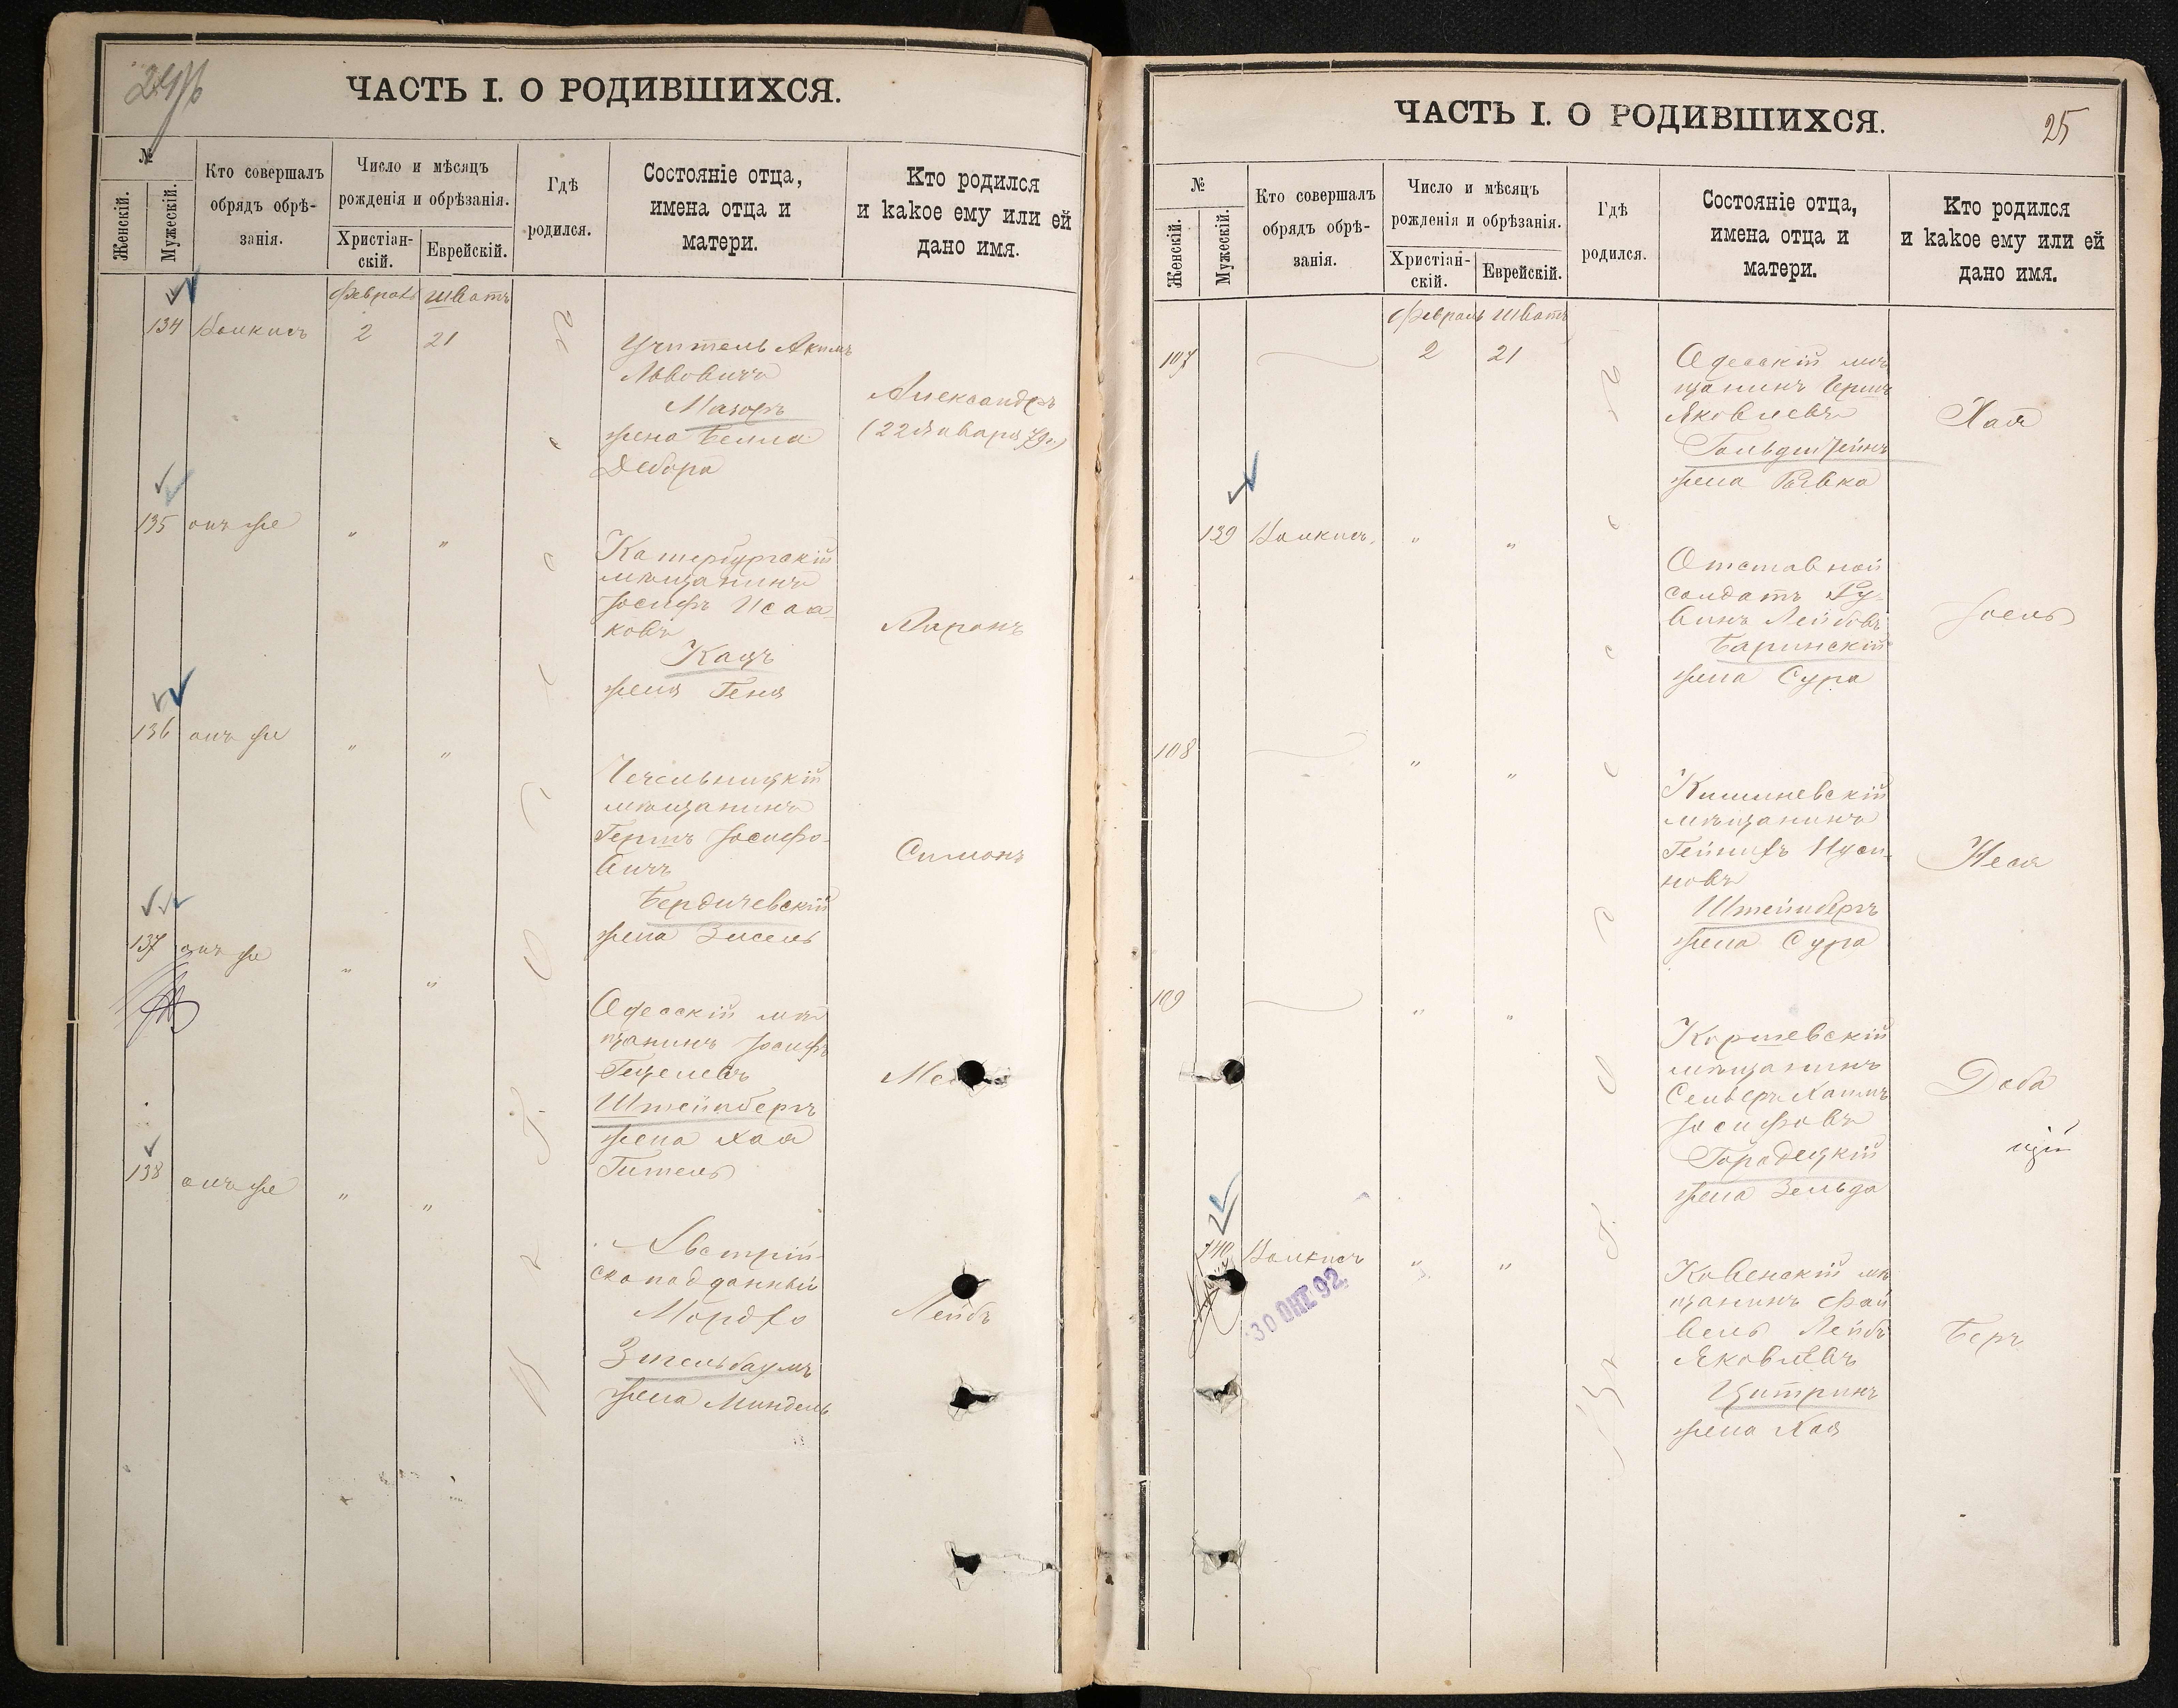 ЧАСТЬ I. О РОДИВШИХСЯ.
№
Женскій.
Мужескій.
Кто совершалъ
обрядъ обрѣ-
занія.
Число и мѣсяцъ
рожденія и обрѣзанія.
Христіан-
скій.
Еврейскій.
Гдѣ
родился.
Состояніе отца,
имена отца и
матери.
Кто родился
и какое ему или ей
дано имя.
Февраль Шватъ
134
2
21
Учитель Акимъ
Львовичъ
Мазоръ
жена Бейла
Дебора
Александръ
(22 Января 79 г.)
135 онъ же " "
Катербургскій
мѣщанинъ
Іосифъ Исаа-
ковъ
Кацъ
жена Геня
Ааронъ
136 онъ же " "
Чечельницкій
мѣщанинъ
Гершъ Іосифо-
вичъ
Бердичевскій
жена Зисель
Симонъ
137 онъ же " "
Одесскій мѣ
щанинъ Іосифъ
Гецелевъ
Штейнбергъ
жена Хая
Гитель
138 онъ же " "
Австрій-
ско подданный
Мордко
жена Миндель
Лейбъ
ЧАСТЬ I. О РОДИВШИХСЯ.
25
№
Женскій.
Мужескій.
Кто совершалъ
обрядъ обрѣ-
занія.
Число и мѣсяцъ
рожденія и обрѣзанія.
Христіан-
скій.
Еврейскій.
Гдѣ
родился.
Состояніе отца,
имена отца и
матери.
Кто родился
и какое ему или ей
дано имя.
Февраль Шватъ
107
2
21
Одесскій мѣ
щанинъ
Яковлевъ
Гольдштейнъ
жена Ривка
Хая
139 " "
Отставной
солдатъ Ру-
винъ Лейбовъ
Баринскій
жена Сура
Іоель
108 " "
Кишиневскій
мѣщанинъ
Гейнихъ Нуси-
новъ
Штейнбергъ
жена Сура
109 " "
мѣщанинъ
Хаимъ
Іосифовъ
Городецкій
жена Зельда
Доба
цій
140 " "
30 ОКТ. 92
Ковенскій мѣ
щанинъ Фай
вель Лейбъ
Яковлевъ
Цитринъ
жена Хая
Беръ